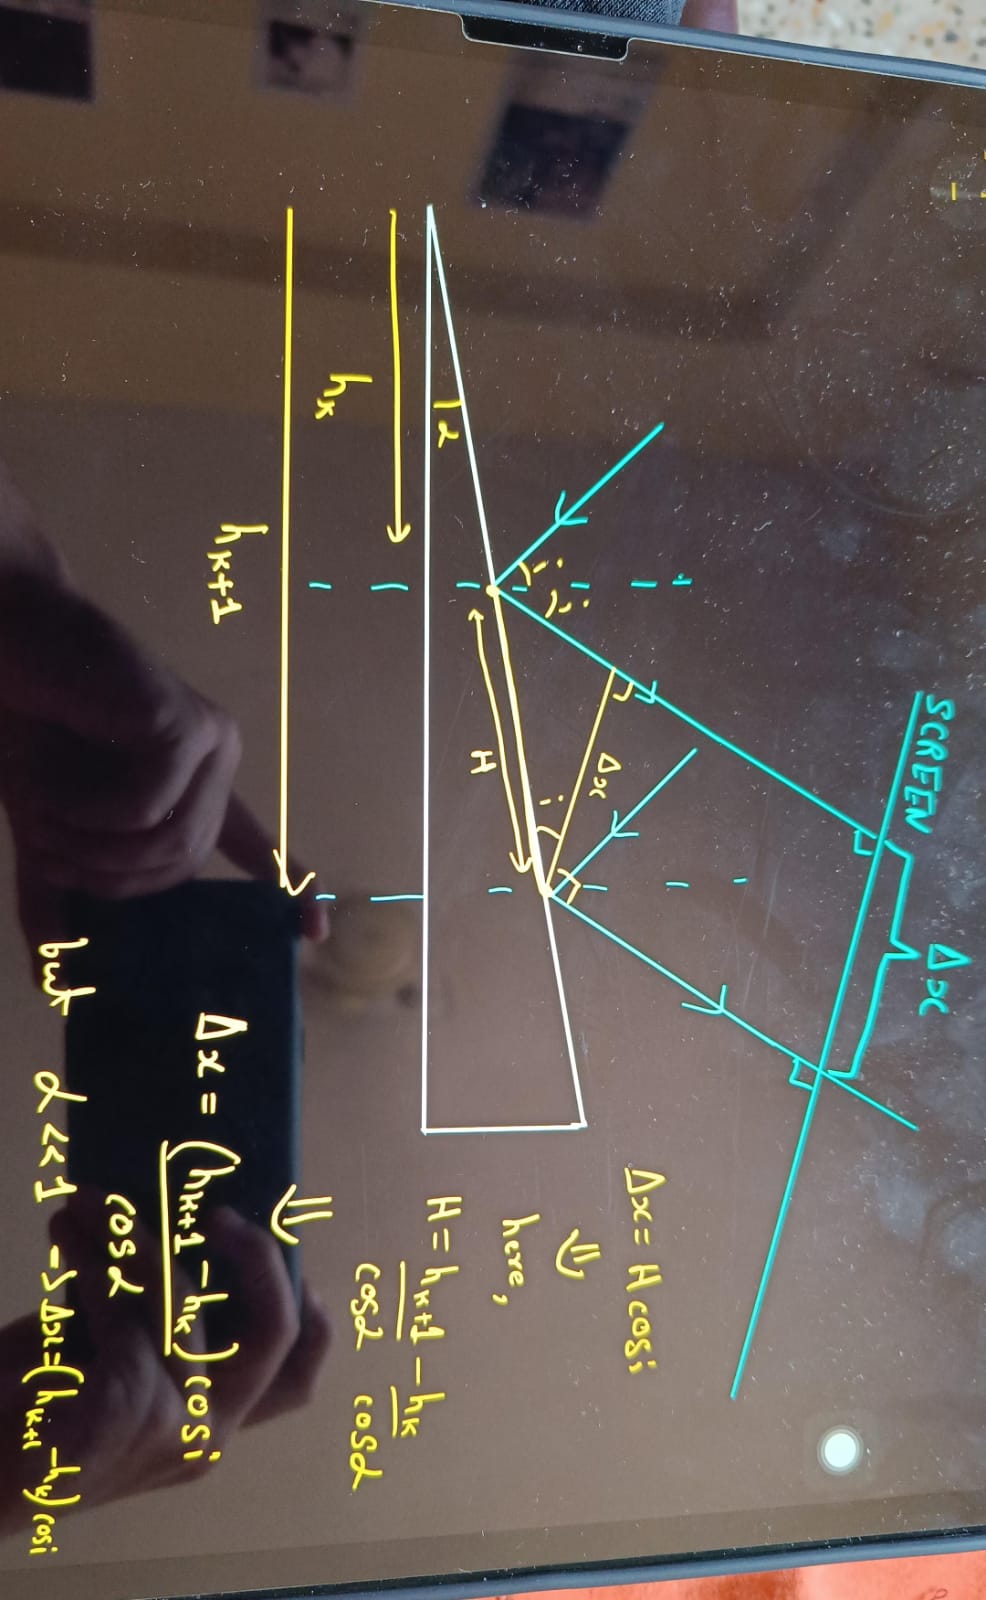 SCREEN
Δx
i
i
Δx
i
H
α
h_k
h_{k+1}
Δx = H cos i
⇓
here,
H = h_{k+1}/cosα - h_k/cosα
⇓
Δx = (h_{k+1} - h_k) cos i / cosα
but α << 1 -> Δx = (h_{k+1} - h_k) cos i